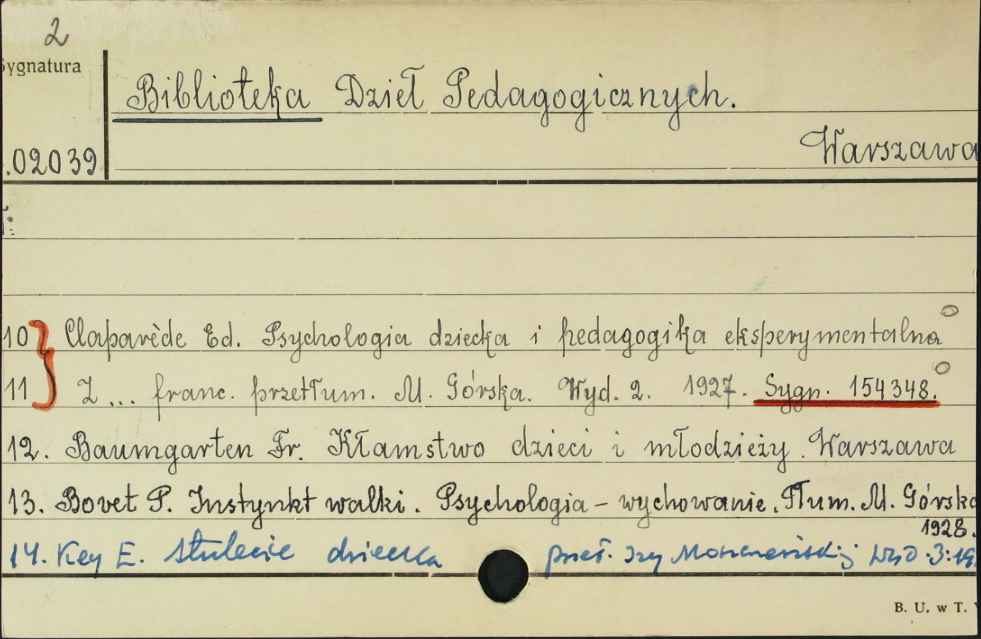 2
Sygnatura
Biblioteka Dzieł Pedagogicznych.
Warszawa
.02039
10 Claparède Ed. Psychologia dziecka i pedagogika eksperymentalna
11 Z ... franc. przetłum. M. Górska. Wyd. 2. 1927. Sygn. 154348.
12. Baumgarten Fr. Kłamstwo dzieci i młodzieży. Warszawa
13. Bovet P. Instynkt walki. Psychologia - wychowanie. Tłum. M. Górska
1928.
14. Key E. Stulecie dziecka przeł. Izy Moszczeńskiej wyd. 3:19
B. U. w T.